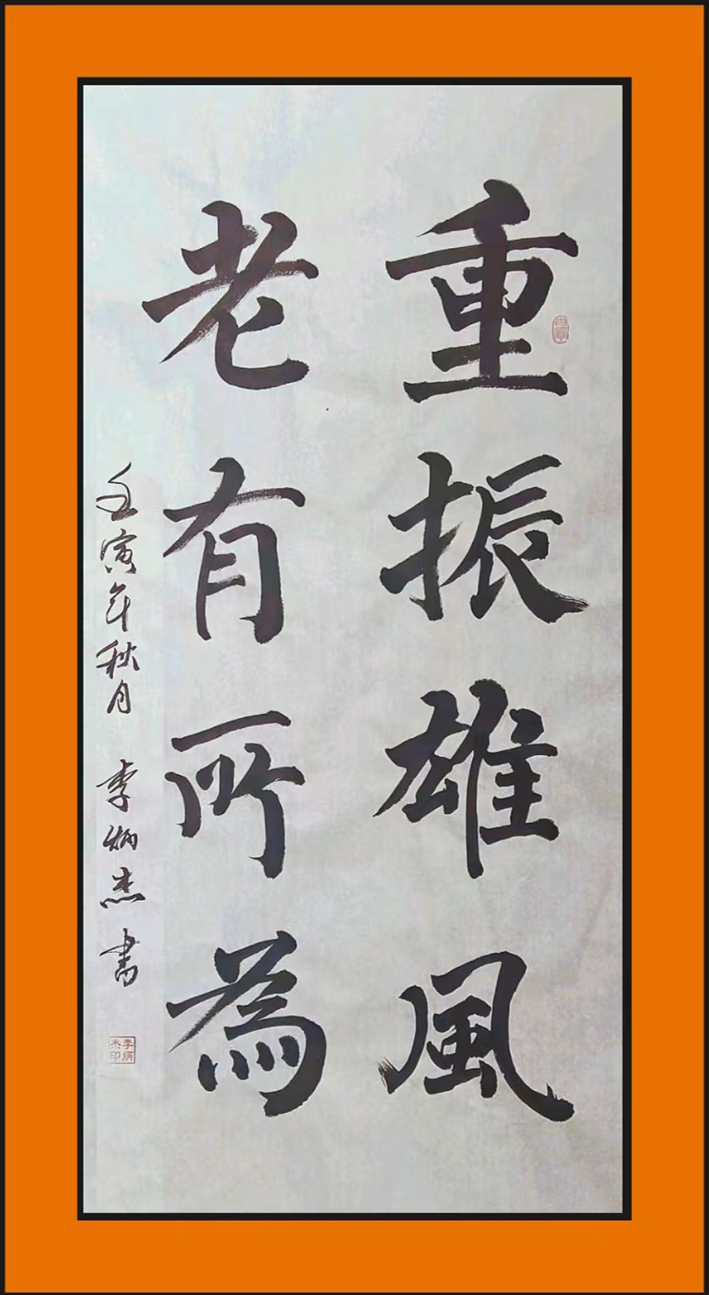 重振雄風
老有所為
壬寅年秋月 李炳杰書
李炳
杰印